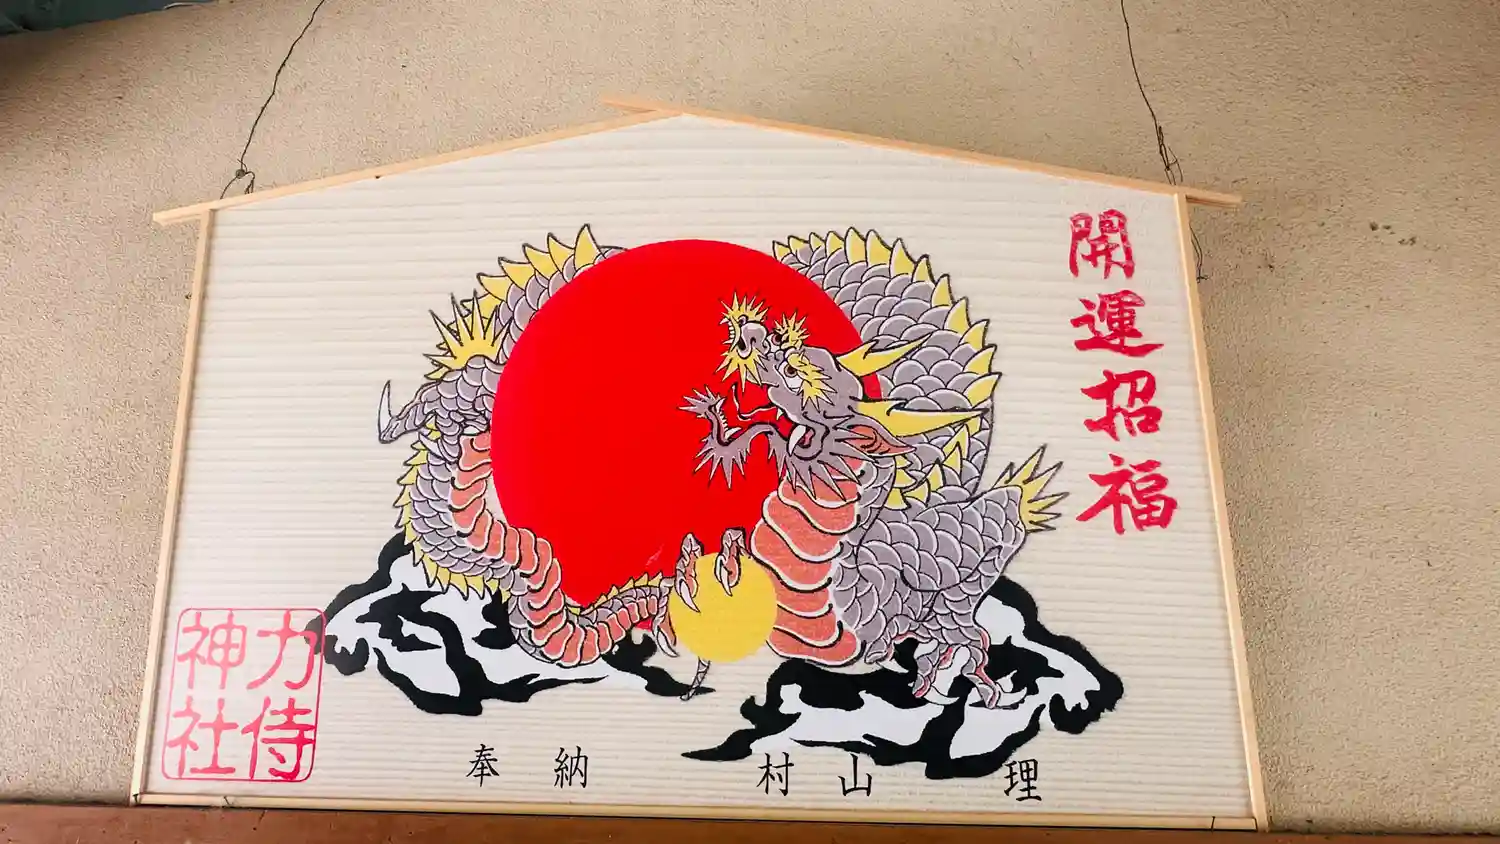 開運招福
奉納 村山 理
力侍
神社